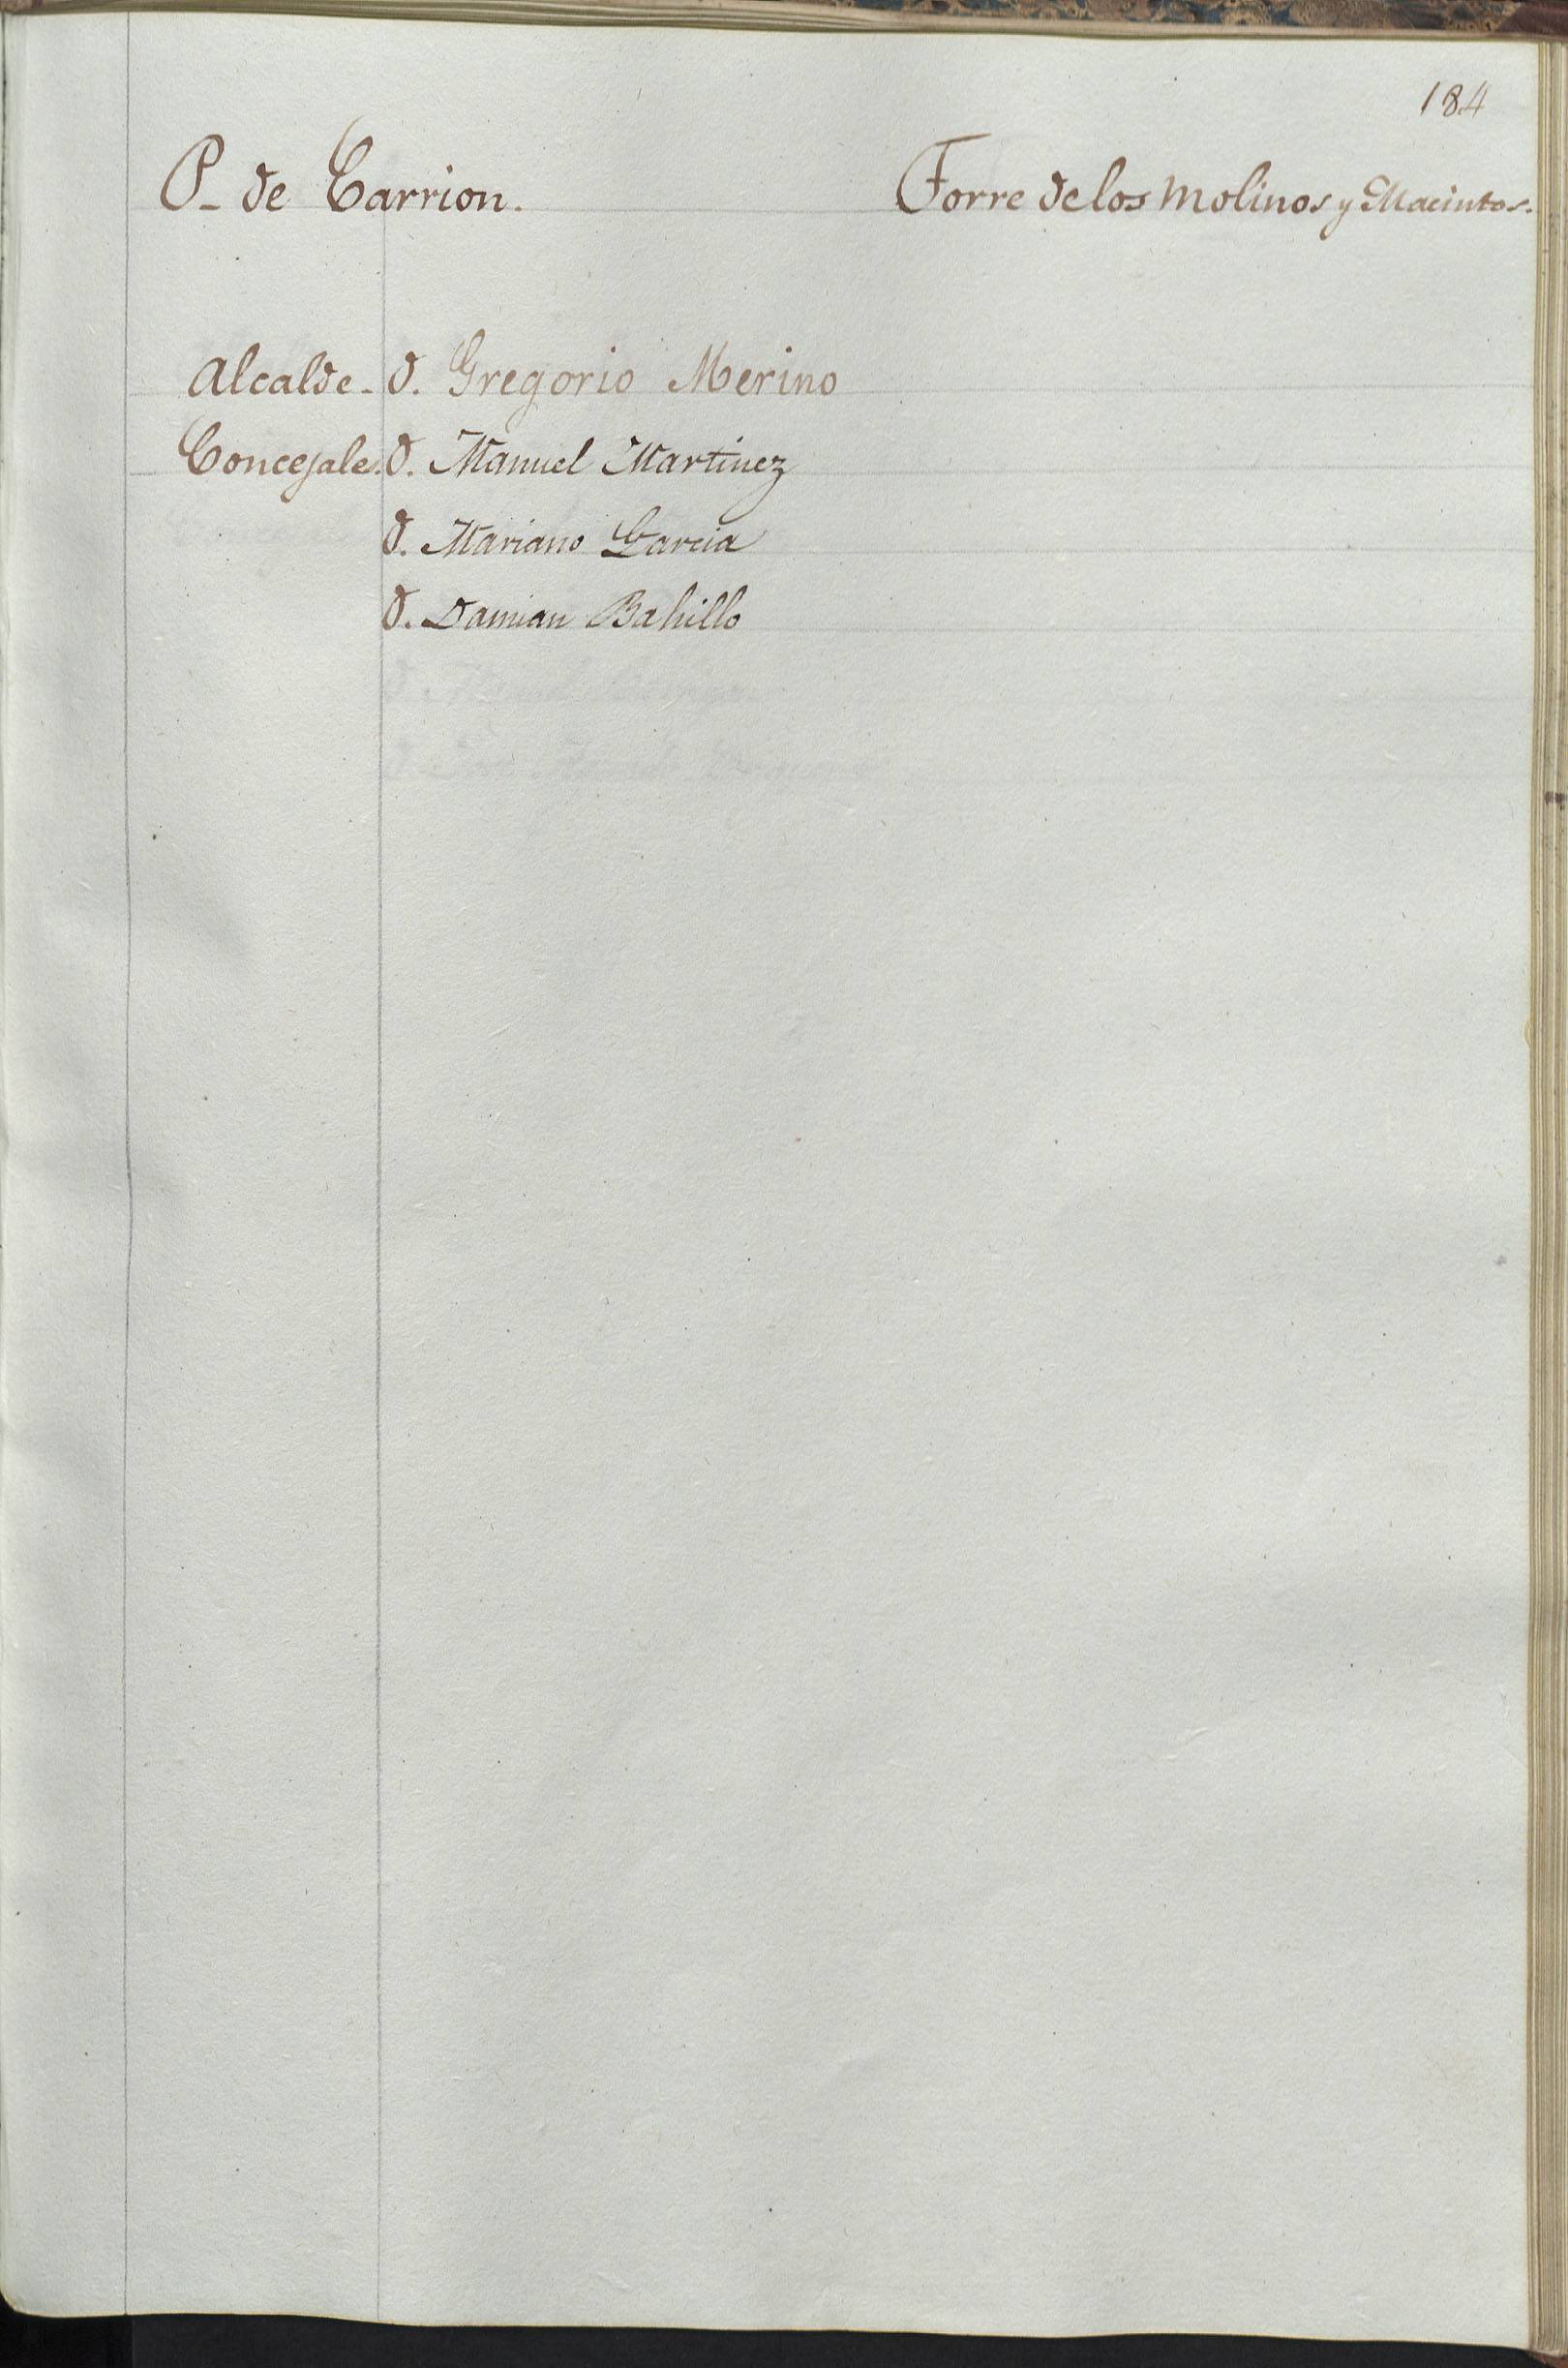 184
P- de Carrion. Torre de los Molinos y Macintos.
Alcalde - D. Gregorio Merino
Concejales. D. Manuel Martinez
D. Mariano Garcia
D. Damian Bahillo